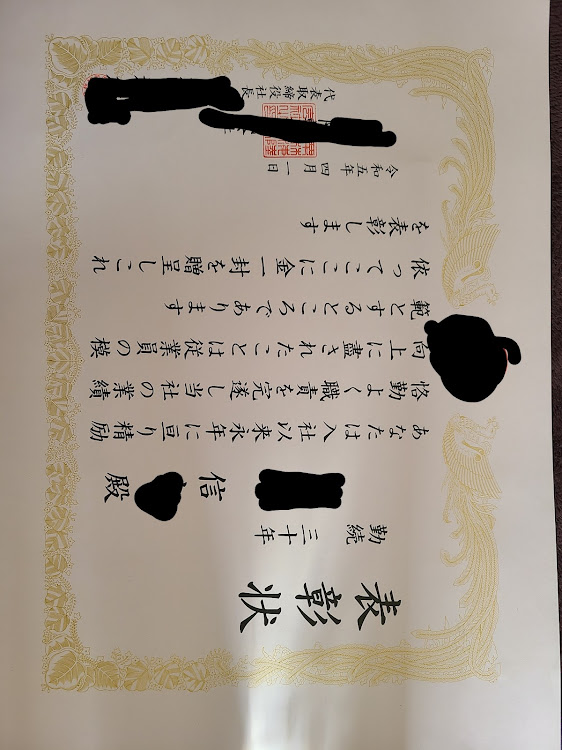 表彰状
勤続 三十年
信 殿
あなたは入社以来永年に亘り精励
恪勤よく職責を完遂し当社の業績
向上に盡されたことは従業員の模
範とするところであります
依ってここに金一封を贈呈しこれ
を表彰します
令和五年四月一日
代表取締役社長